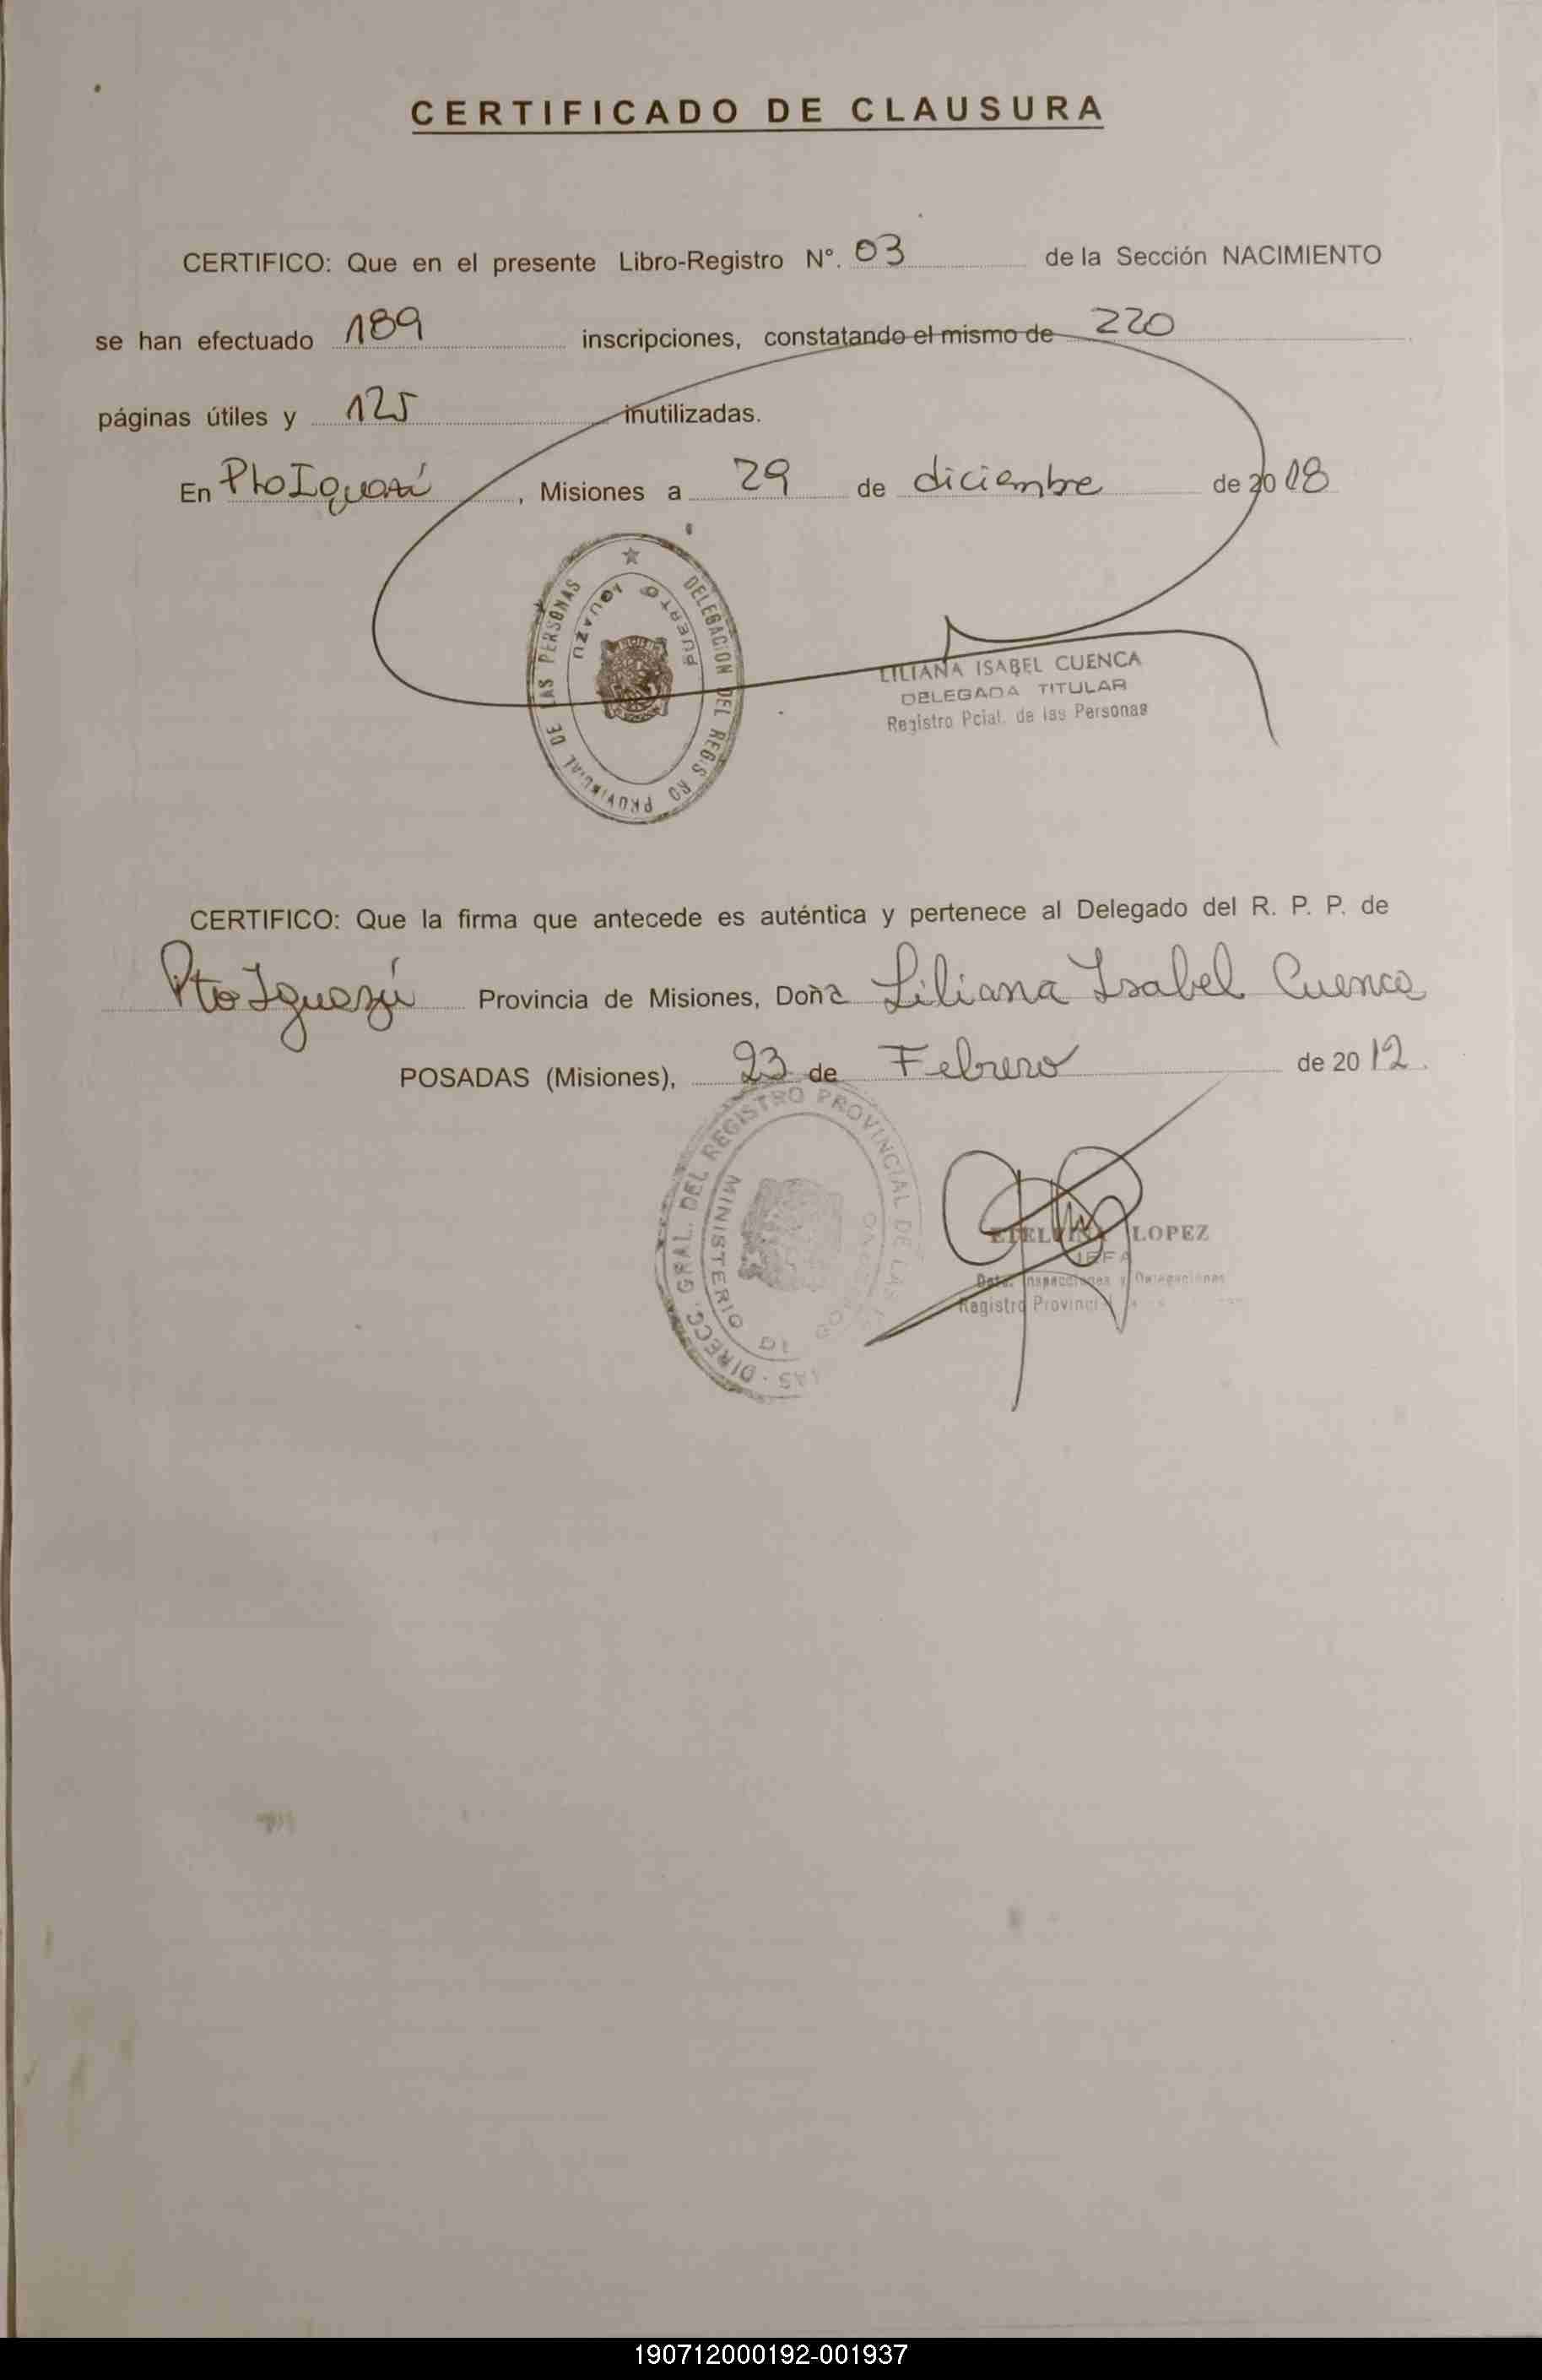 CERTIFICADO DE CLAUSURA
CERTIFICO: Que en el presente Libro-Registro N°. 03 de la Sección NACIMIENTO
se han efectuado 189 inscripciones, constatando el mismo de 220
páginas útiles y 125 inutilizadas.
En Pto Iguazú, Misiones a 29 de diciembre de 20 08
DELEGACION DEL REGIS RO PROVINCIAL DE LAS PERSONAS
PUERTO IGUAZU
LILIANA ISABEL CUENCA
DELEGADA TITULAR
Registro Pcial. de las Personas
CERTIFICO: Que la firma que antecede es auténtica y pertenece al Delegado del R. P. P. de
Pto Iguazú Provincia de Misiones, Doña Liliana Isabel Cuenca
POSADAS (Misiones), 23 de Febrero de 20 12.
DIRECC. GRAL. DEL REGISTRO PROVINCIAL DE LAS
MINISTERIO
LOPEZ
JEFA
Dpto. Inspecciones y Delegaciones
Registro Provincial
190712000192-001937